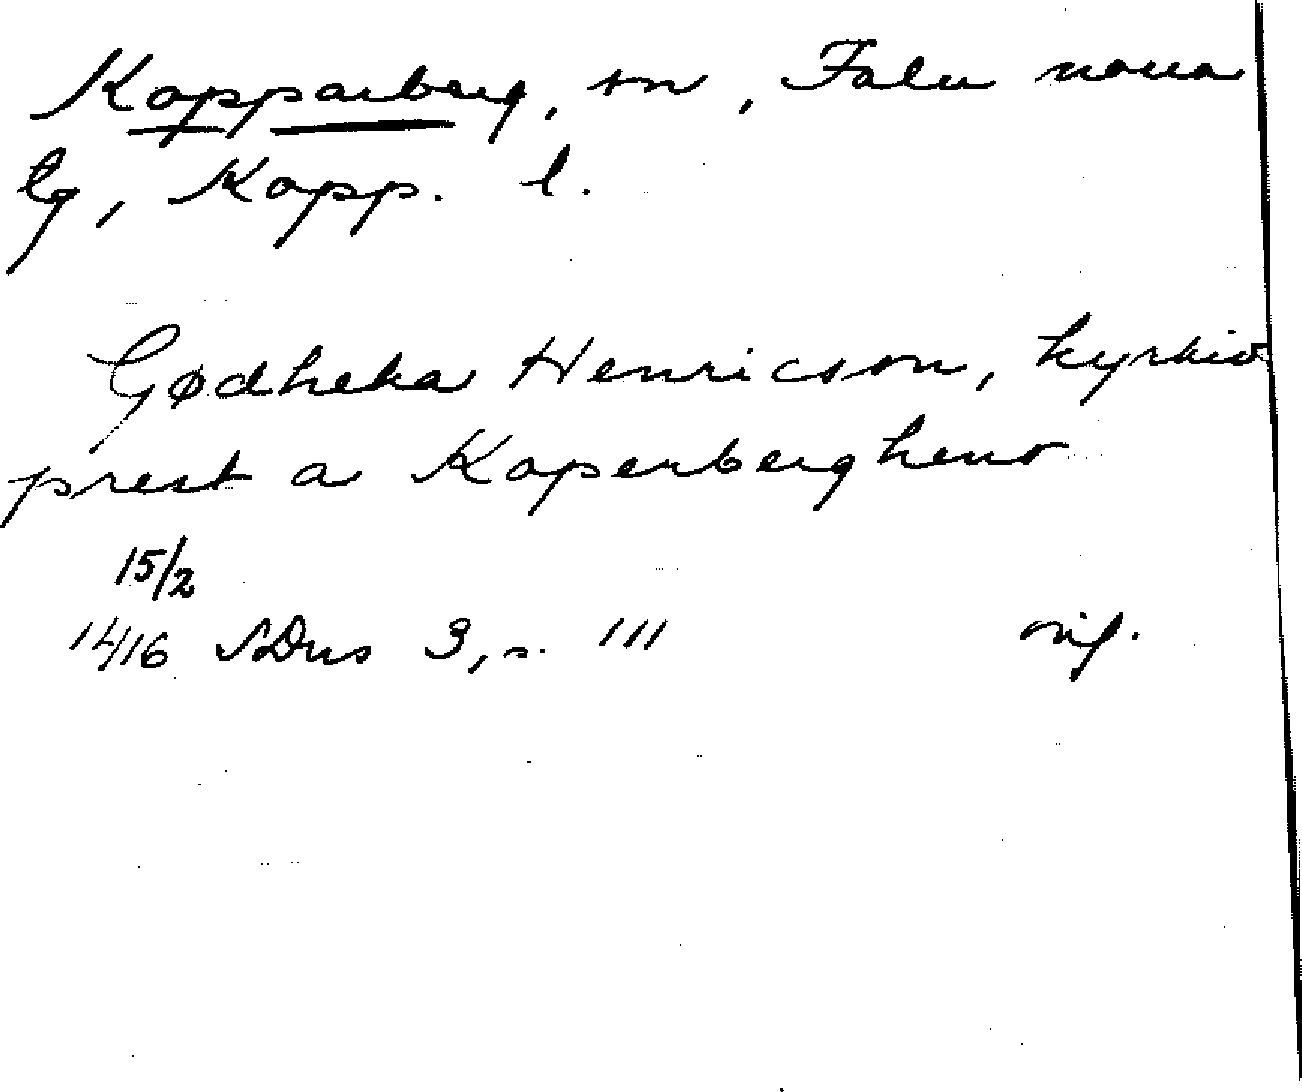 Kopparberg, sn, Falu norra
lg, Kopp. l.
Gødheka Henricson, kyrkio
prest a Koperbergheno
15/2
1416 SDns 3, s. 111 orig.